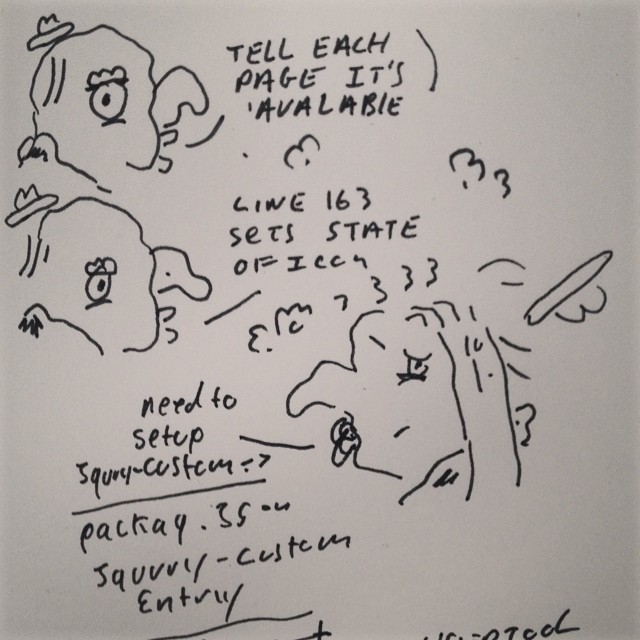 TELL EACH
PAGE IT'S
AVALABLE
LINE 163
SETS STATE
OF
need to
setup
packag.json
squrrly-custom
Entry